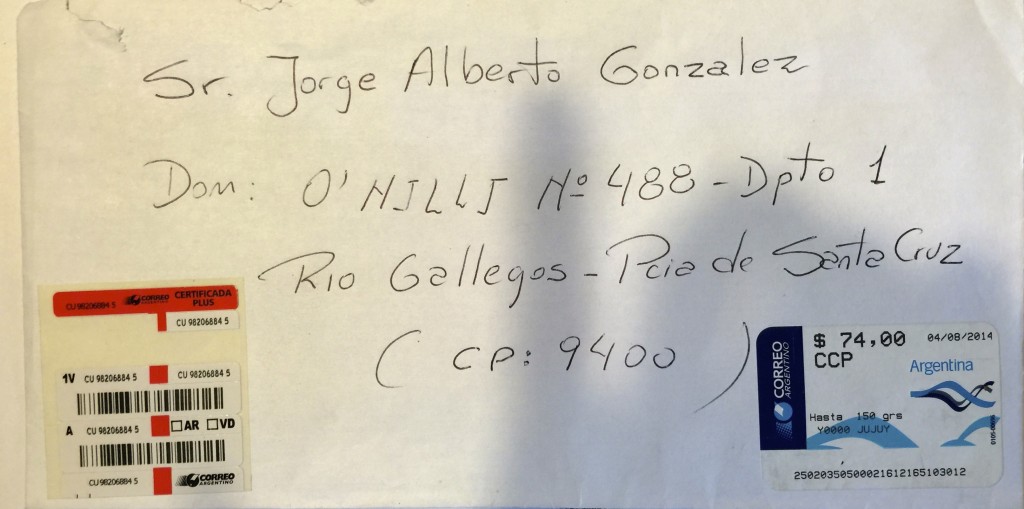 Sr. Jorge Alberto Gonzalez
Dom: O'HJLLJ Nº 488 - Dpto 1
Rio Gallegos - Pcia de Santa Cruz
( CP: 9400 )
CU 98206884 5 CORREO ARGENTINO CERTIFICADA PLUS
CU 98206884 5
1V CU 98206884 5 CU 98206884 5
A CU 98206884 5 AR VD
CU 98206884 5 CORREO ARGENTINO
CORREO ARGENTINO
$ 74,00 04/08/2014
CCP
Argentina
Hasta 150 grs
Y0000 JUJUY
25020350500021612165103012